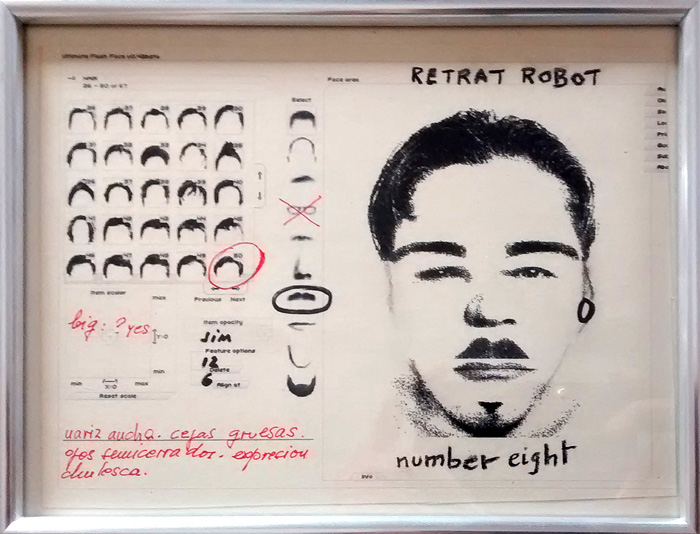 Ultimate Flash Face v0.42beta
HAIR
RETRAT ROBOT
Face area
Select
Item scalar
max
Previous Next
big: ? yes
Y=0
Item opacity
JIM
Feature options
12
Delete
6
Align st
min
min
X=0
max
Reset scale
nariz ancha. cejas gruesas.
ojos semicerrados. expresion
chulesca.
number eight